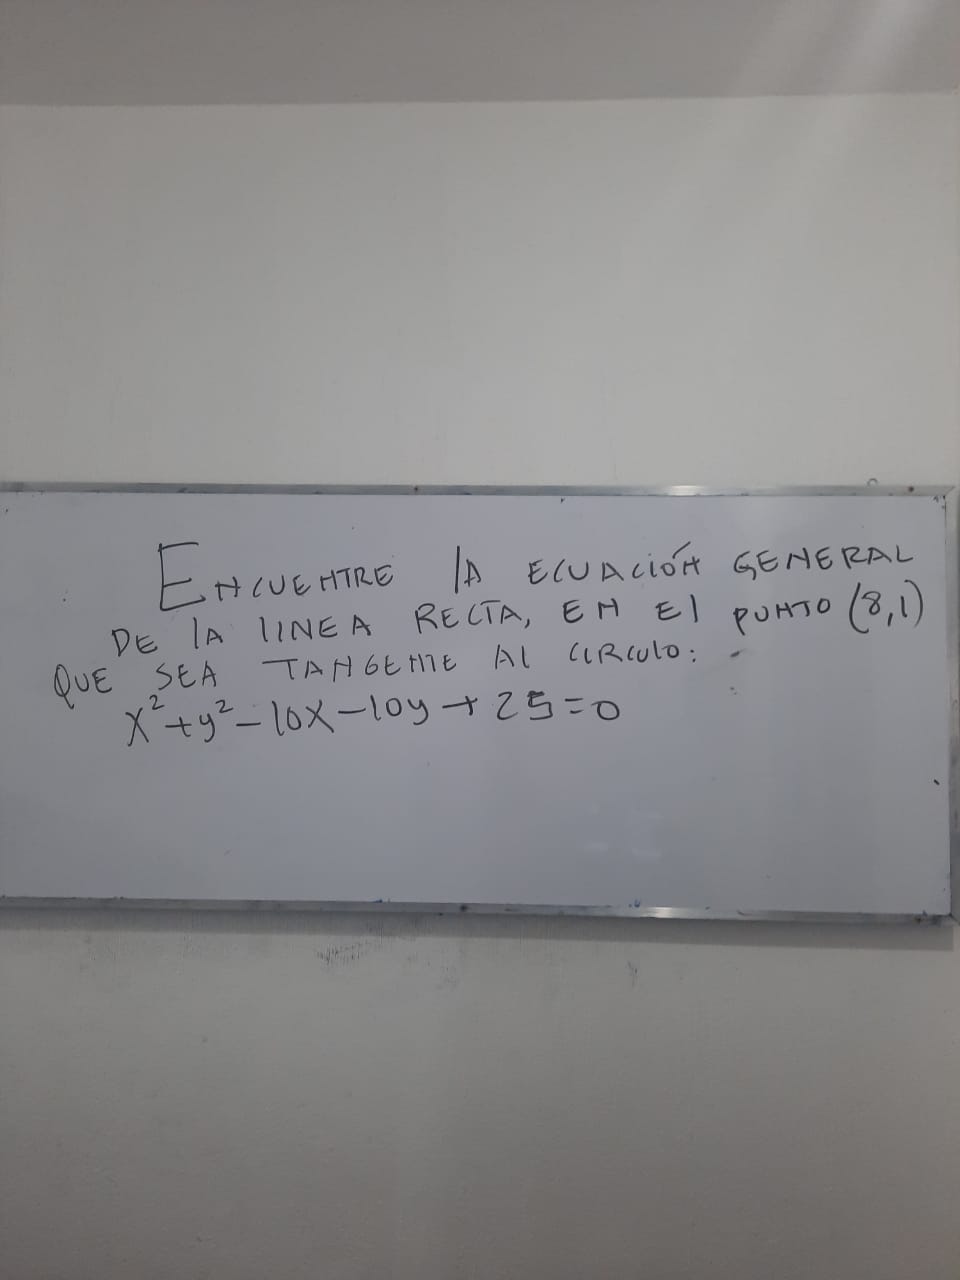 ENCUENTRE LA ECUACIÓN GENERAL
DE LA LINEA RECTA, EN EL PUNTO (8,1)
QUE SEA TANGENTE AL CIRCULO:
x²+y²-10x-10y+25=0